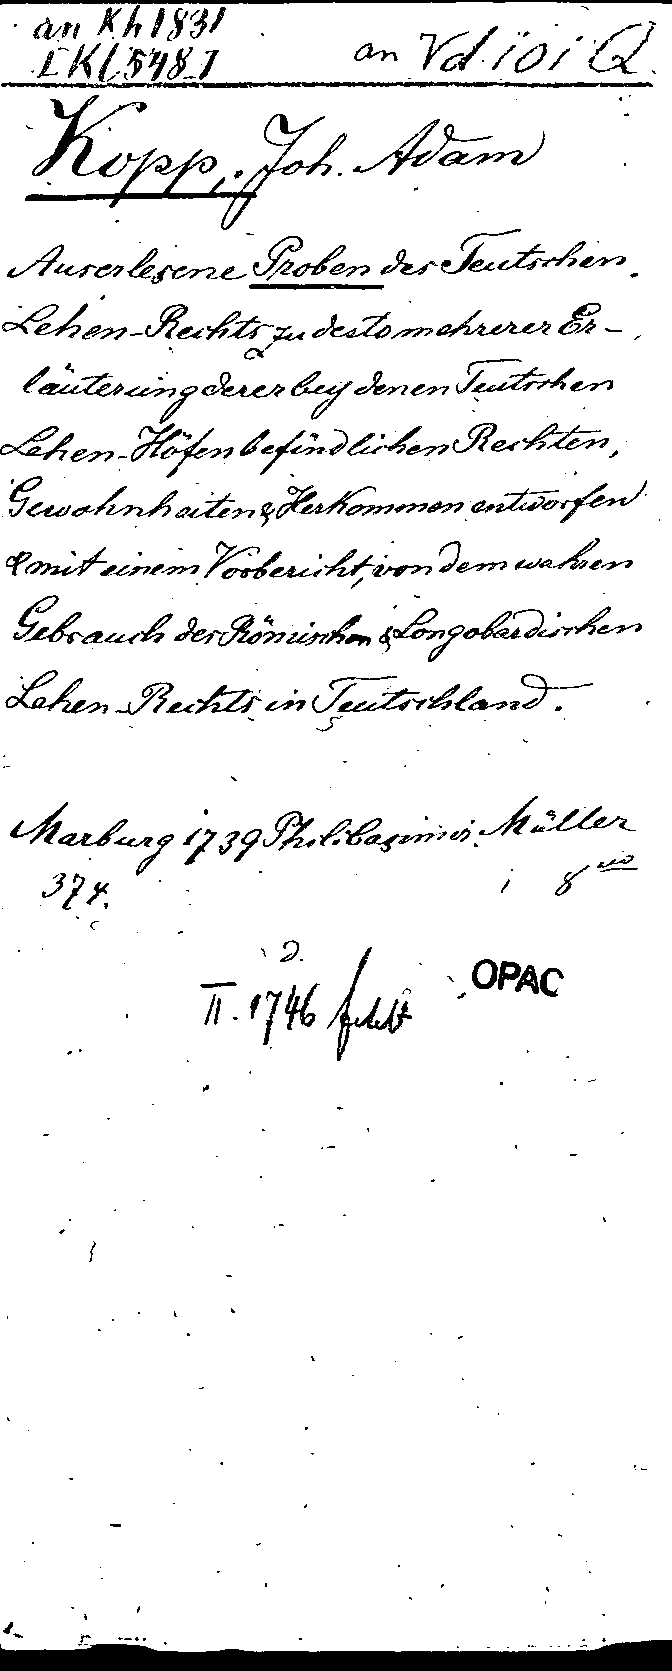 an Kh 1831
an Vd 101 Q
Kopp, Joh. Adam
Auserlesene Proben des Teutschen
Lehen-Rechts zu desto mehrerer Er-
läuterung derer bey denen Teutschen
Lehen-Höfen befindlichen Rechten,
Gewohnheiten & Herkommen entworfen
& mit einem Vorbericht, von dem wahren
Gebrauch des Römischen & Longobardischen
Lehen-Rechts in Teutschland.
Marburg 1739 Phil. Casimir Müller
374. 8
II. 1746 fehlt
OPAC